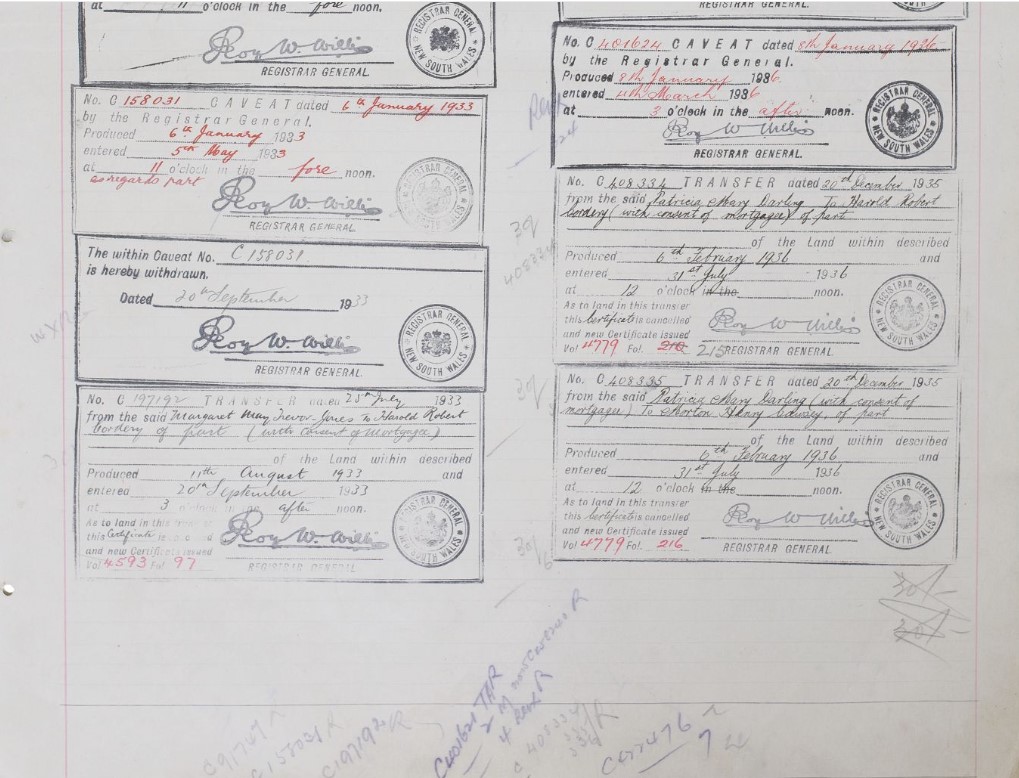 at 11 o'clock in the fore noon.
Roy W. Willis
REGISTRAR GENERAL.
REGISTRAR GENERAL
NEW SOUTH WALES
No. C 158031 CAVEAT dated 6th January 1933
by the Registrar General.
Produced 6th January 1933
entered 5th May 1933
at 11 o'clock in the fore noon.
as regards part
Roy W. Willis
REGISTRAR GENERAL
REGISTRAR GENERAL
NEW SOUTH WALES
The within Caveat No. C 158031
is hereby withdrawn.
Dated 20th September 1933
Roy W. Willis
REGISTRAR GENERAL
REGISTRAR GENERAL
NEW SOUTH WALES
No. C 197192 TRANSFER dated 25th July 1933
from the said Margaret May Trevor-Jones to Harold Robert
Cordery of part (with consent of Mortgagee)
of the Land within described
Produced 11th August 1933 and
entered 20th September 1933
at 3 o'clock in the after noon.
As to land in this transfer
this Certificate is cancelled
and new Certificate issued
Vol 4593 Fol 97
Roy W. Willis
REGISTRAR GENERAL
REGISTRAR GENERAL
NEW SOUTH WALES
REGISTRAR GENERAL.
No. C 401624 CAVEAT dated 8th January 1936
by the Registrar General.
Produced 8th January 1936
entered 4th March 1936
at 3 o'clock in the after noon.
Roy W Willis
REGISTRAR GENERAL.
REGISTRAR GENERAL
NEW SOUTH WALES
No. C 408334 TRANSFER dated 20th December 1935
from the said Patricia Mary Darling To Harold Robert
Cordery (with consent of mortgagee) of part
of the Land within described
Produced 6th February 1936 and
entered 31st July 1936
at 12 o'clock in the noon.
As to land in this transfer
this Certificate is cancelled
and new Certificate issued
Vol 4779 Fol. 216 215
Roy W Willis
REGISTRAR GENERAL
REGISTRAR GENERAL
NEW SOUTH WALES
No. C 408335 TRANSFER dated 20th December 1935
from the said Patricia Mary Darling (with consent of
mortgagee) To Morton Henry of part
of the Land within described
Produced 6th February 1936 and
entered 31st July 1936
at 12 o'clock in the noon.
As to land in this transfer
this Certificate is cancelled
and new Certificate issued
Vol 4779 Fol. 216
Roy W Willis
REGISTRAR GENERAL
REGISTRAR GENERAL
NEW SOUTH WALES
408334
C158031 R
C197192 R
408334